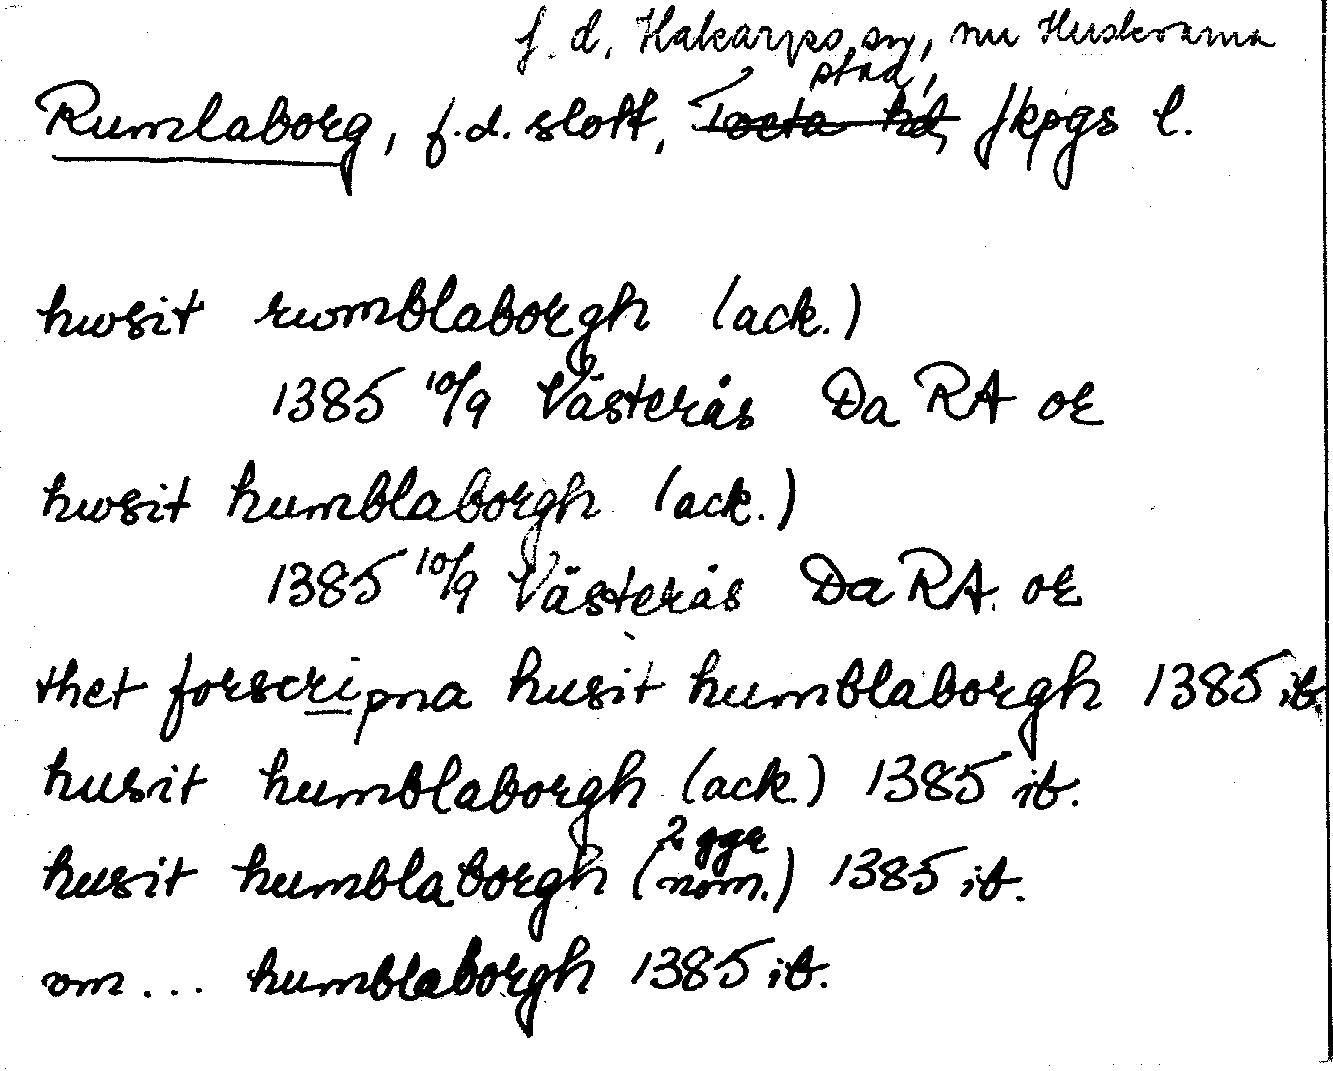 f. d. Hakarps sn, nu Huskvarna
stad,
Rumlaborg, f.d. slott, Tveta hd, Jkpgs l.
hwsit rwmblaborgh (ack.)
1385 10/9 Västerås Da RA or
hwsit humblaborgh (ack.)
1385 10/9 Västerås Da RA. or
thet forscripna husit humblaborgh 1385 ib.
husit humblaborgh (ack.) 1385 ib.
2 ggr
husit humblaborgh (nom.) 1385 ib.
vm ... humblaborgh 1385 ib.